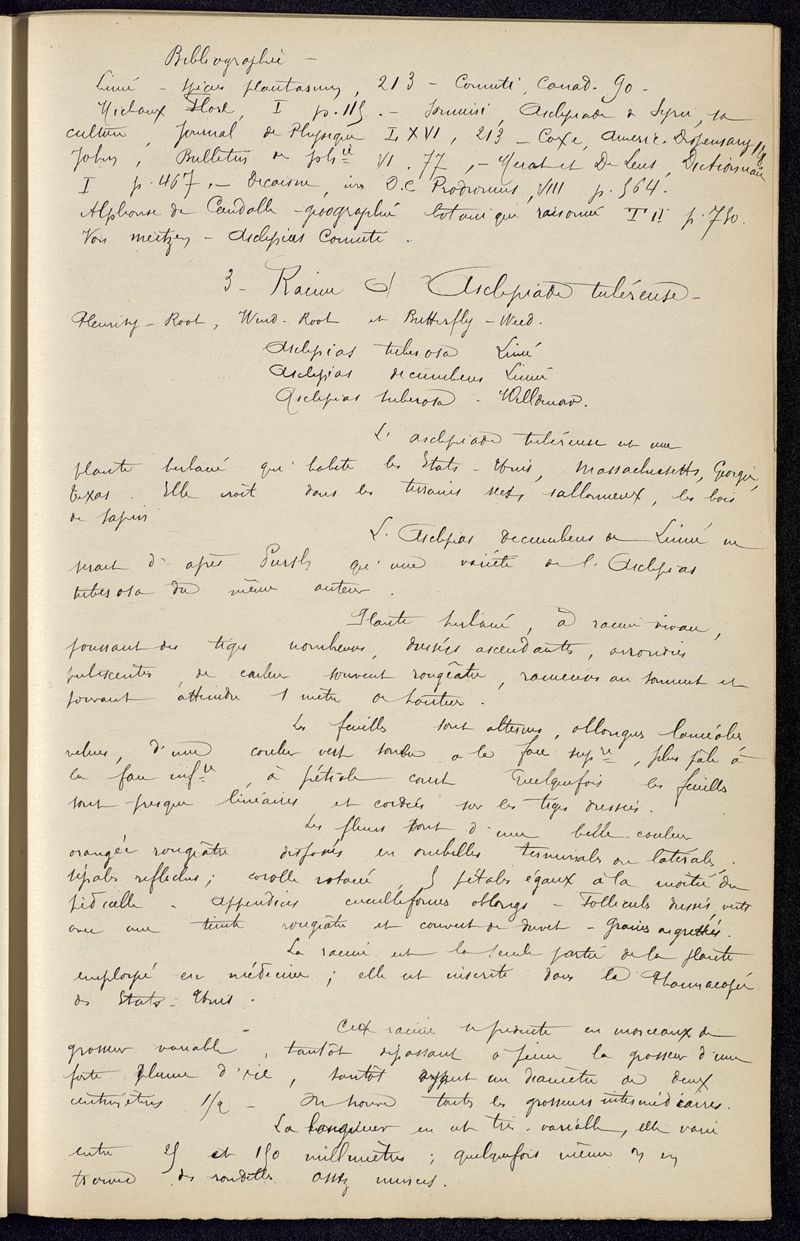 Bibliographie —
Linné — species plantarum, 213 — Cornuti, Canad. 90 —
Michaux Flore, I p. 115. — Sonnini, Asclepiade de Syrie, sa
culture, Journal de Physique LXVI, 213 — Coxe, Americ. Dispensary 118
John, Bulletin de phie VI. 77, — Merat et De Lens, Dictionnaire
I p. 467, — Decaisne, in D.C Prodromus, VIII p. 564.
Alphonse de Candolle — géographie botanique raisonnée T II p. 730.
Von — Asclepias Cornuti.
3 — Racine d'Asclepiade tubéreuse —
Pleurisy — Root, Wind — Root et Butterfly — Weed.
Asclepias tuberosa Linné
Asclepias decumbens Linné
Asclepias tuberosa — Willdenow.
L'asclepiade tubéreuse est une
plante herbacée qui habite les Etats — Unis, Massachussetts, Georgie,
Texas. Elle croît dans les terrains secs, sallonneux, les bois
de sapins
L'Asclepias decumbens de Linné ne
serait d'après Pursh qu'une variété de l'Asclepias
tuberosa du même auteur.
Plante herbacée, à racine vivace,
poussant des tiges nombreuses, dressées ascendantes, arrondies
pubescentes, de couleur souvent rougeâtre, rameuses au sommet et
pouvant atteindre 1 mètre de hauteur.
Les feuilles sont alternes, oblongues lancéolées
velues, d'une couleur vert sombre a la face supre, plus pâle à
la face infre à pétiole court Quelquefois les feuilles
sont presque linéaires et cordées sur les tiges dressées.
Les fleurs sont d'une belle couleur
orangée rougeâtre disposées en ombelles terminales ou latérales.
sépales reflechis; corolle rotacée 5 pétales égaux à la moitié du
pédicelle — Appendices cuculliformes oblongs — Follicules dressés, verts
avec une teinte rougeâtre et couvert de duvet — Graines aigrettées.
La racine est la seule partie de la plante
employée en médecine; elle est inscrite dans la Pharmacopée
des Etats — Unis.
Cette racine se présente en morceaux de
grosseur variable, tantôt dépassant à peine la grosseur d'une
forte plume d'oie, tantôt ayant un diamètre de deux
centimètres 1/2 — On trouve toutes les grosseurs intermédiaires.
La longueur en est très — variable, elle varie
entre 25 et 150 millimètres; quelquefois même on en
trouve des rondelles assez minces.